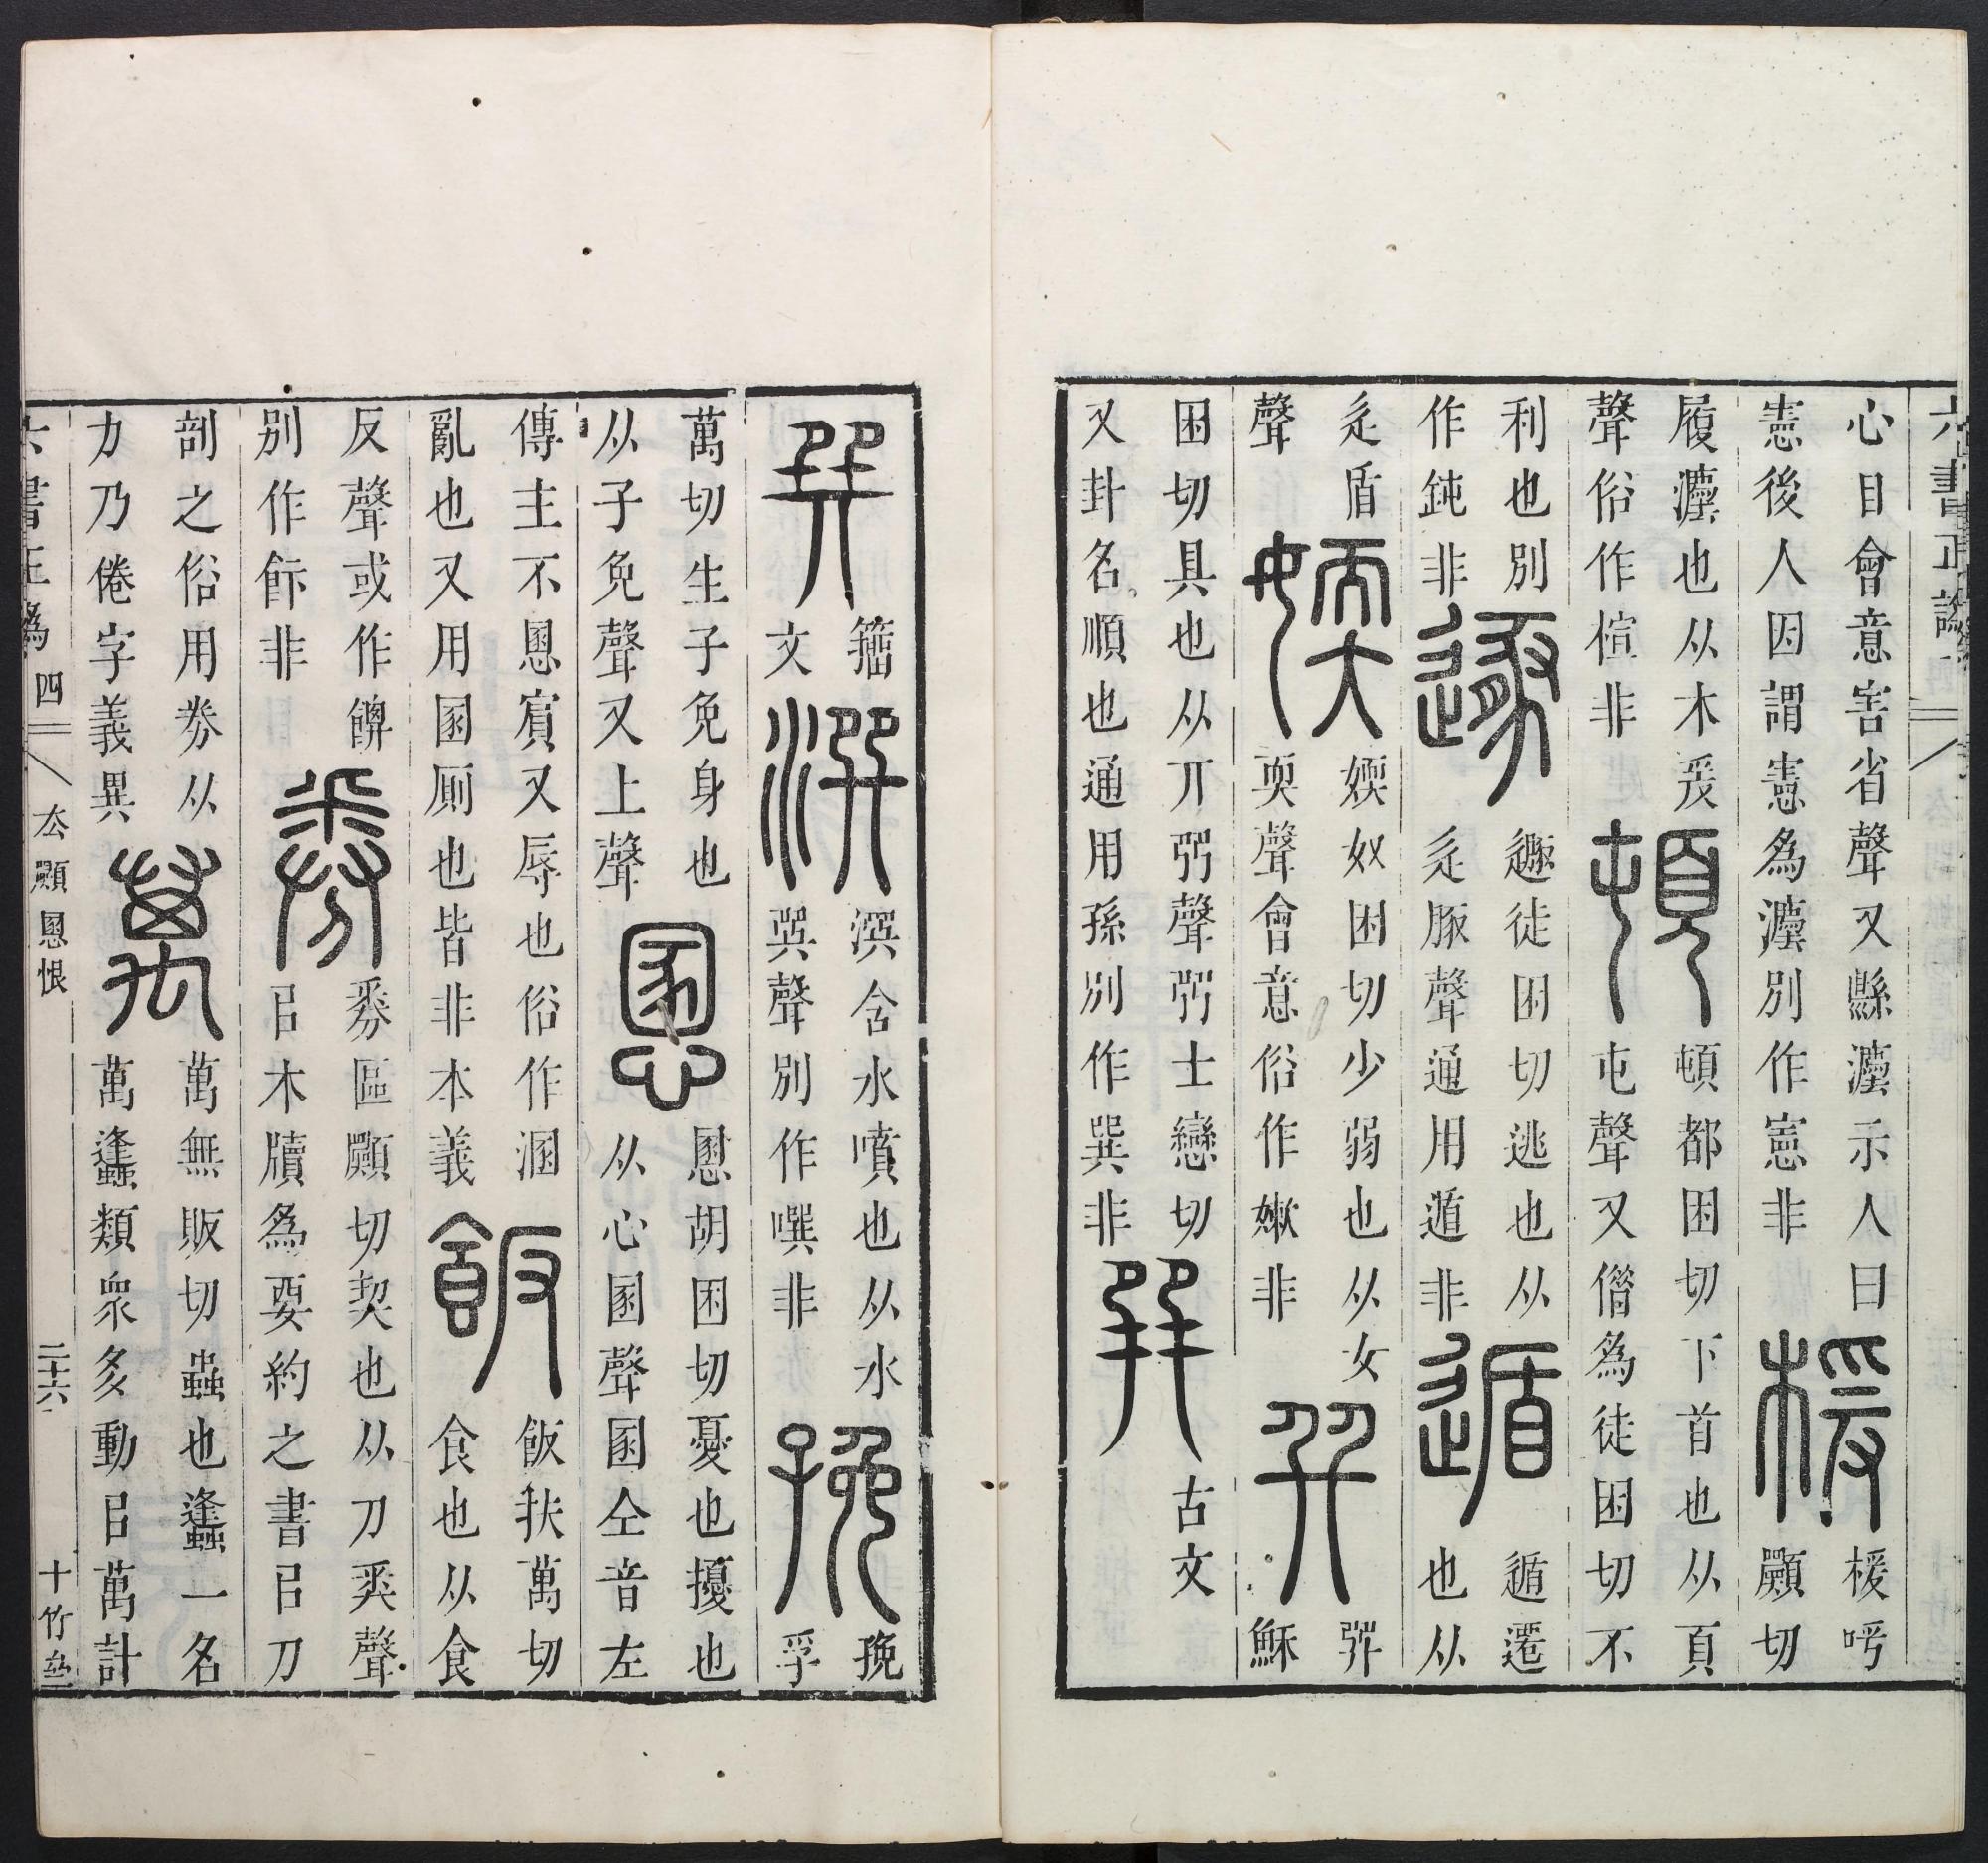 六書正譌
心目會意害省聲又縣灋示人曰
憲後人因謂憲為灋別作㝥非
楥
楥吁
願切
履灋也从木爰
聲俗作楦非
頓
頓都困切下首也从頁
屯聲又僭為徒困切不
利也別
作鈍非
遯
遯徒困切逃也从
辵豚聲通用遁非
遁
遁遷
也从
辵盾
聲
媆
媆奴困切少弱也从女
耎聲會意俗作嫰非
巽
穌
困切具也从丌𢁉聲𢁉士戀切
又卦名順也通用孫別作巽非
巽
古文
巽
籀
文
潠
潠含水噴也从水
巽聲別作噀非
㝃
㝃
孚
萬切生子免身也
从子免聲又上聲
慁
慁胡困切憂也擾也
从心圂聲圂仝音左
傳主不慁賓又辱也俗作溷
亂也又用圂廁也皆非本義
飯
飯扶萬切
食也从食
反聲或作餴
別作飰非
券
券區願切契也从刀𢍏聲
㠯木牘為要約之書㠯刀
剖之俗用劵从
力乃倦字義異
萬
萬無販切蟲也䗬一名
萬䗬類衆多動㠯萬計
六書正譌 四 去願慁恨 二十六 十竹齋